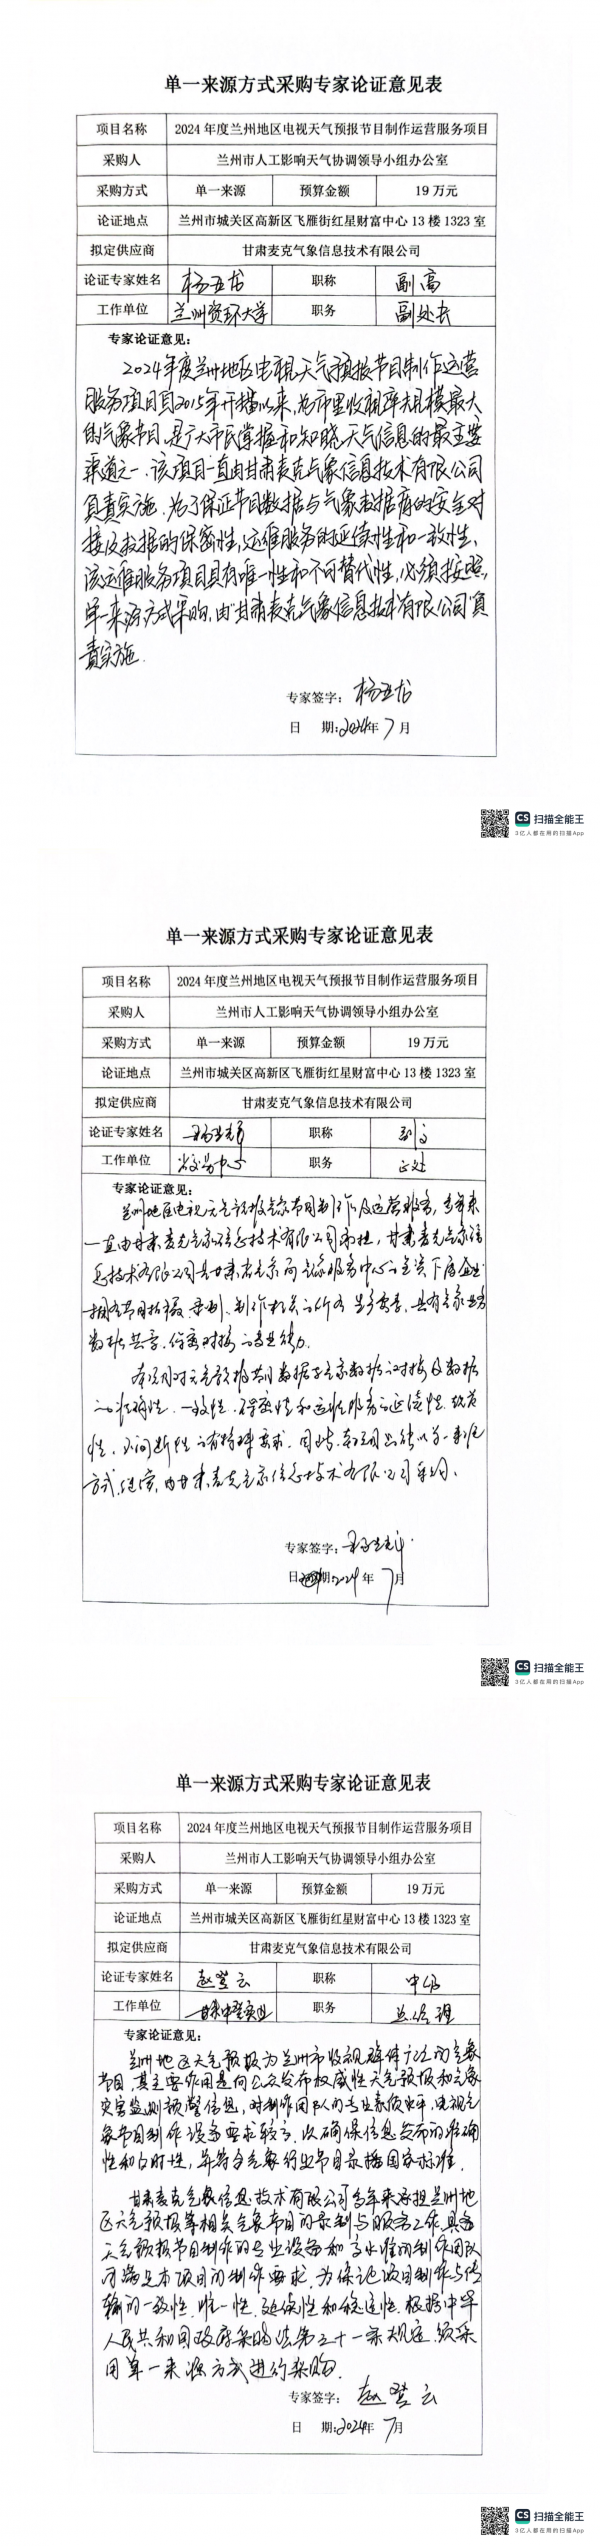 单一来源方式采购专家论证意见表
项目名称 2024年度兰州地区电视天气预报节目制作运营服务项目
采购人 兰州市人工影响天气协调领导小组办公室
采购方式 单一来源 预算金额 19万元
论证地点 兰州市城关区高新区飞雁街红星财富中心13楼1323室
拟定供应商 甘肃麦克气象信息技术有限公司
论证专家姓名 杨亚龙 职称 副高
工作单位 兰州资环大学 职务 副处长
专家论证意见：
2024年度兰州地区电视天气预报节目制作运营
服务项目自2015年开播以来，为市里收视率规模最大
的气象节目，是广大市民掌握和知晓天气信息的最主要
渠道之一，该项目一直由甘肃麦克气象信息技术有限公司
负责实施，为了保证节目数据与气象数据库的安全对
接及数据的保密性，运维服务的延续性和一致性，
该运维服务项目具有唯一性和不可替代性，必须按照
单一来源方式采购，由“甘肃麦克气象信息技术有限公司”负
责实施.
专家签字：杨亚龙
日 期:2024年7月
CS 扫描全能王
3亿人都在用的扫描App
单一来源方式采购专家论证意见表
项目名称 2024年度兰州地区电视天气预报节目制作运营服务项目
采购人 兰州市人工影响天气协调领导小组办公室
采购方式 单一来源 预算金额 19万元
论证地点 兰州市城关区高新区飞雁街红星财富中心13楼1323室
拟定供应商 甘肃麦克气象信息技术有限公司
论证专家姓名 职称 副高
工作单位 职务 正处
专家论证意见：
兰州地区电视天气预报气象节目制作及运营服务，多年来
一直由甘肃麦克气象信息技术有限公司承担，甘肃麦克气象信
息技术有限公司是甘肃省气象局气象服务中心的全资下属企业
拥有节目拍摄、录制、制作相关的所有，具有气象业务
数据共享、保密对接的专业能力.
本项目对天气预报节目数据与气象数据的对接及数据
的准确性、一致性、保密性和运维服务的延续性、
性、不间断性的有特殊要求，因此，本项目只能以单一来源
方式，继续由甘肃麦克气象信息技术有限公司采购.
专家签字：
日 期:2024年7月
CS 扫描全能王
3亿人都在用的扫描App
单一来源方式采购专家论证意见表
项目名称 2024年度兰州地区电视天气预报节目制作运营服务项目
采购人 兰州市人工影响天气协调领导小组办公室
采购方式 单一来源 预算金额 19万元
论证地点 兰州市城关区高新区飞雁街红星财富中心13楼1323室
拟定供应商 甘肃麦克气象信息技术有限公司
论证专家姓名 赵登云 职称 中级
工作单位 甘肃中登实业 职务 总经理
专家论证意见：
兰州地区天气预报为兰州市收视群体广泛的气象
节目，其主要作用是向公众发布权威性天气预报和气象
灾害监测预警信息，对制作团队的专业素质水平，电视气
象节目制作设备要求较高，以确保信息发布的准确
性和及时性，并符合气象行业节目录播国家标准.
甘肃麦克气象信息技术有限公司多年来承担兰州地
区天气预报等相关气象节目的录制与服务工作，具备
天气预报节目制作的专业设备和高水准的制作团队
可满足本项目的制作要求，为保证项目制作与传
输的一致性、唯一性、延续性和稳定性，根据中华
人民共和国政府采购法第三十一条规定，须采
用单一来源方式进行采购.
专家签字：赵登云
日 期:2024年7月
CS 扫描全能王
3亿人都在用的扫描App